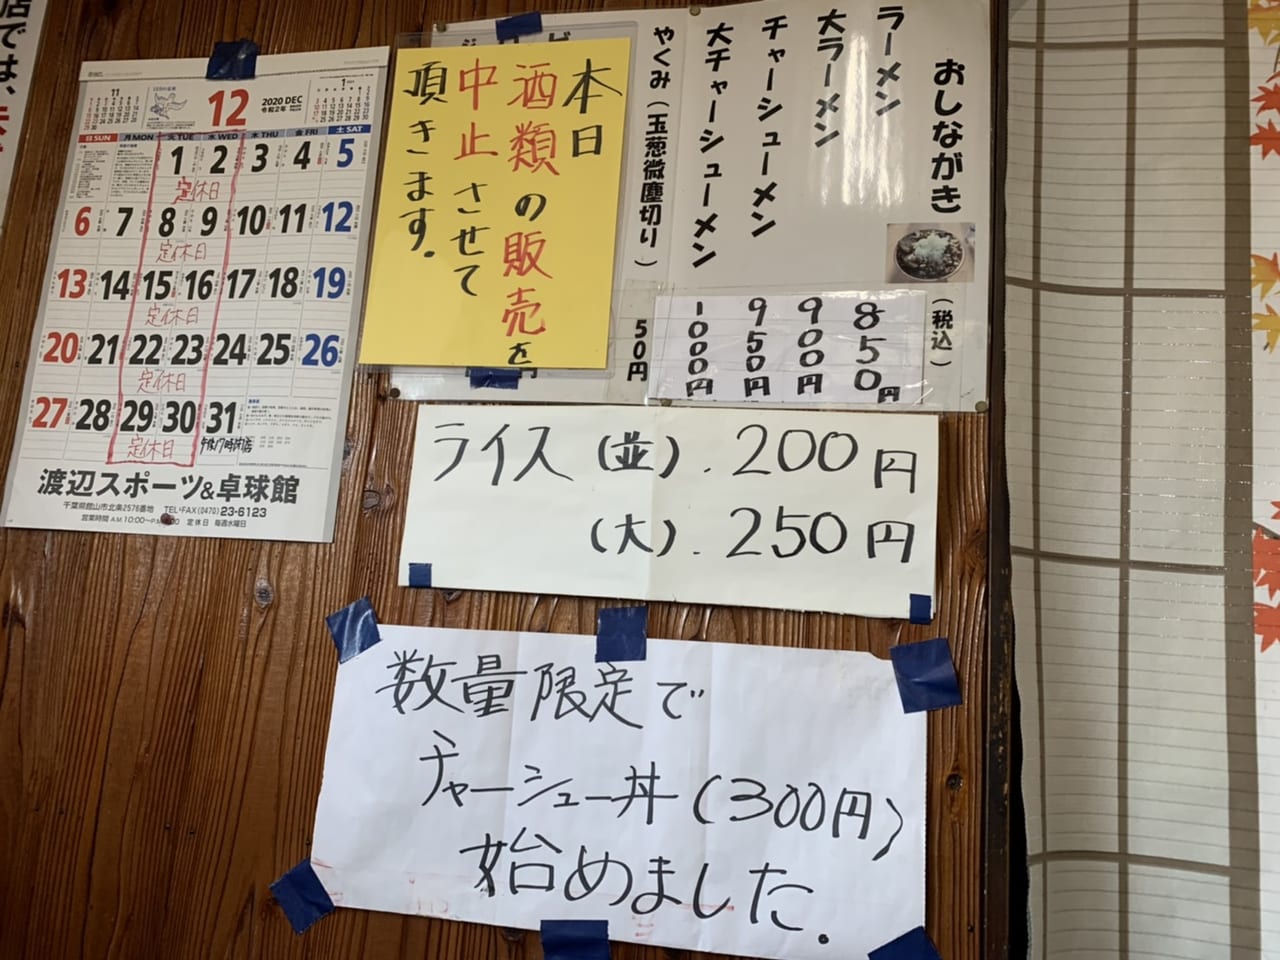 おしながき
(税込)
ラーメン 850円
大ラーメン 900円
チャーシューメン 950円
大チャーシューメン 1000円
やくみ(玉葱微塵切り) 50円
本日
酒類の販売を
中止させて
頂きます.
ライス(並). 200円
(大). 250円
数量限定で
チャーシュー丼(300円)
始めました.
11
12
2020 DEC
令和2年
1
日SUN 月MON 火TUE 水WED 木THU 金FRI 土SAT
1 2 3 4 5
定休日
6 7 8 9 10 11 12
定休日
13 14 15 16 17 18 19
定休日
20 21 22 23 24 25 26
定休日
27 28 29 30 31
定休日
午後17時閉店
渡辺スポーツ&卓球館
千葉県館山市北条2576番地 TEL・FAX(0470)23-6123
営業時間 A.M.10:00～P.M. 定休日 毎週水曜日
店では、